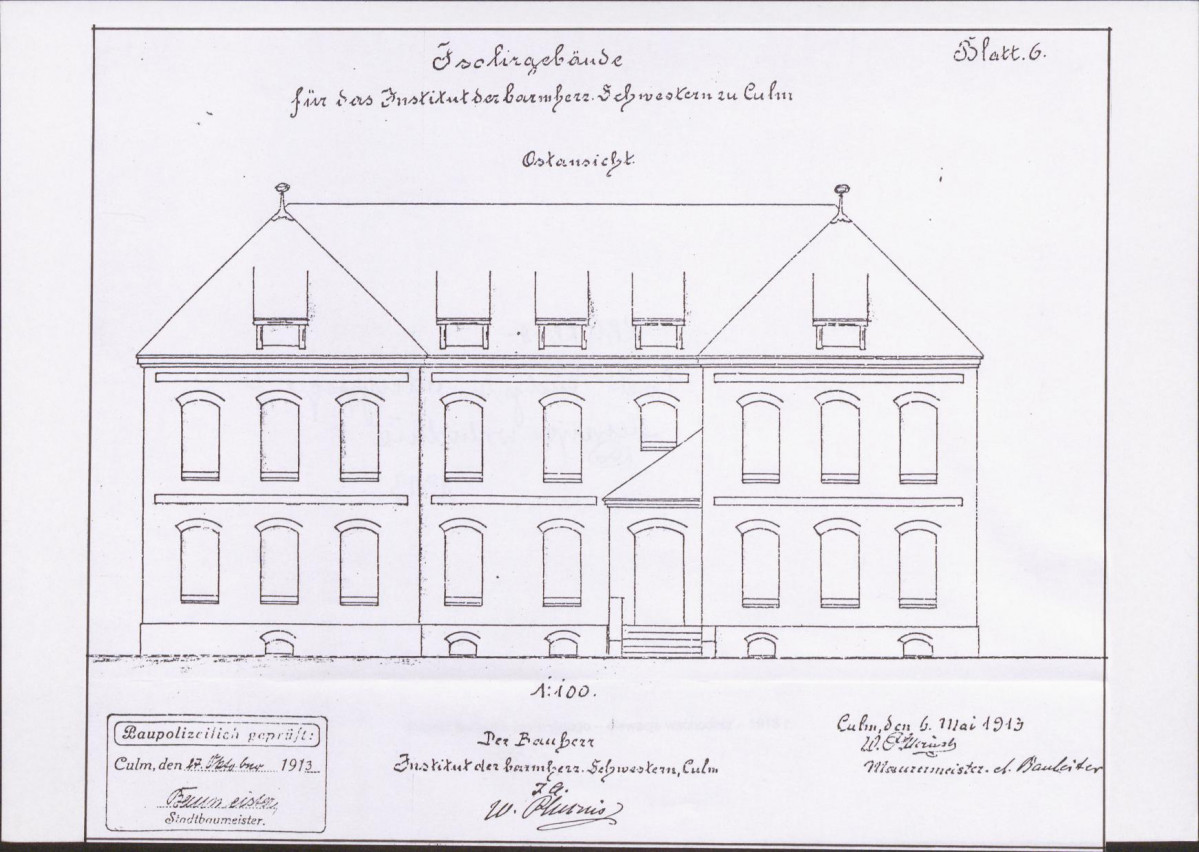 Blatt. 6.
Isolirgebäude
für das Institut der barmherz. Schwestern zu Culm
Ostansicht.
1:100.
Baupolizeilich geprüft:
Culm, den 17. Oktober 1913
Stadtbaumeister.
Der Bauherr
Institut der barmherz. Schwestern, Culm
I. A.
W.
Culm, den 6. Mai 1913
W.
Maurermeister. u. Bauleiter